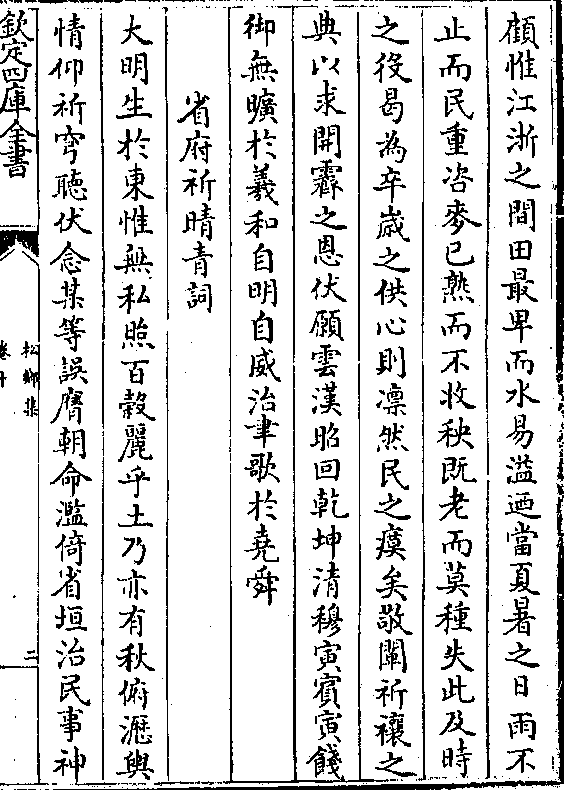 顧惟江浙之間田最卑而水易溢迺當夏暑之日雨不
止而民重咨麥已熟而不收秧既老而莫種失此及時
之役曷為卒歳之供心則凛然民之瘼矣敬闡祈禳之
典以求開霽之恩伏願雲漢昭回乾坤清穆寅賓寅餞
御無曠於羲和自明自威治聿歌於堯舜
省府祈晴青詞
大明生於東惟無私照百榖麗乎土乃亦有秋俯瀝輿
情仰祈穹聽伏念某等誤膺朝命濫倚省垣治民事神
欽定四庫全書
松鄉集
卷十
二